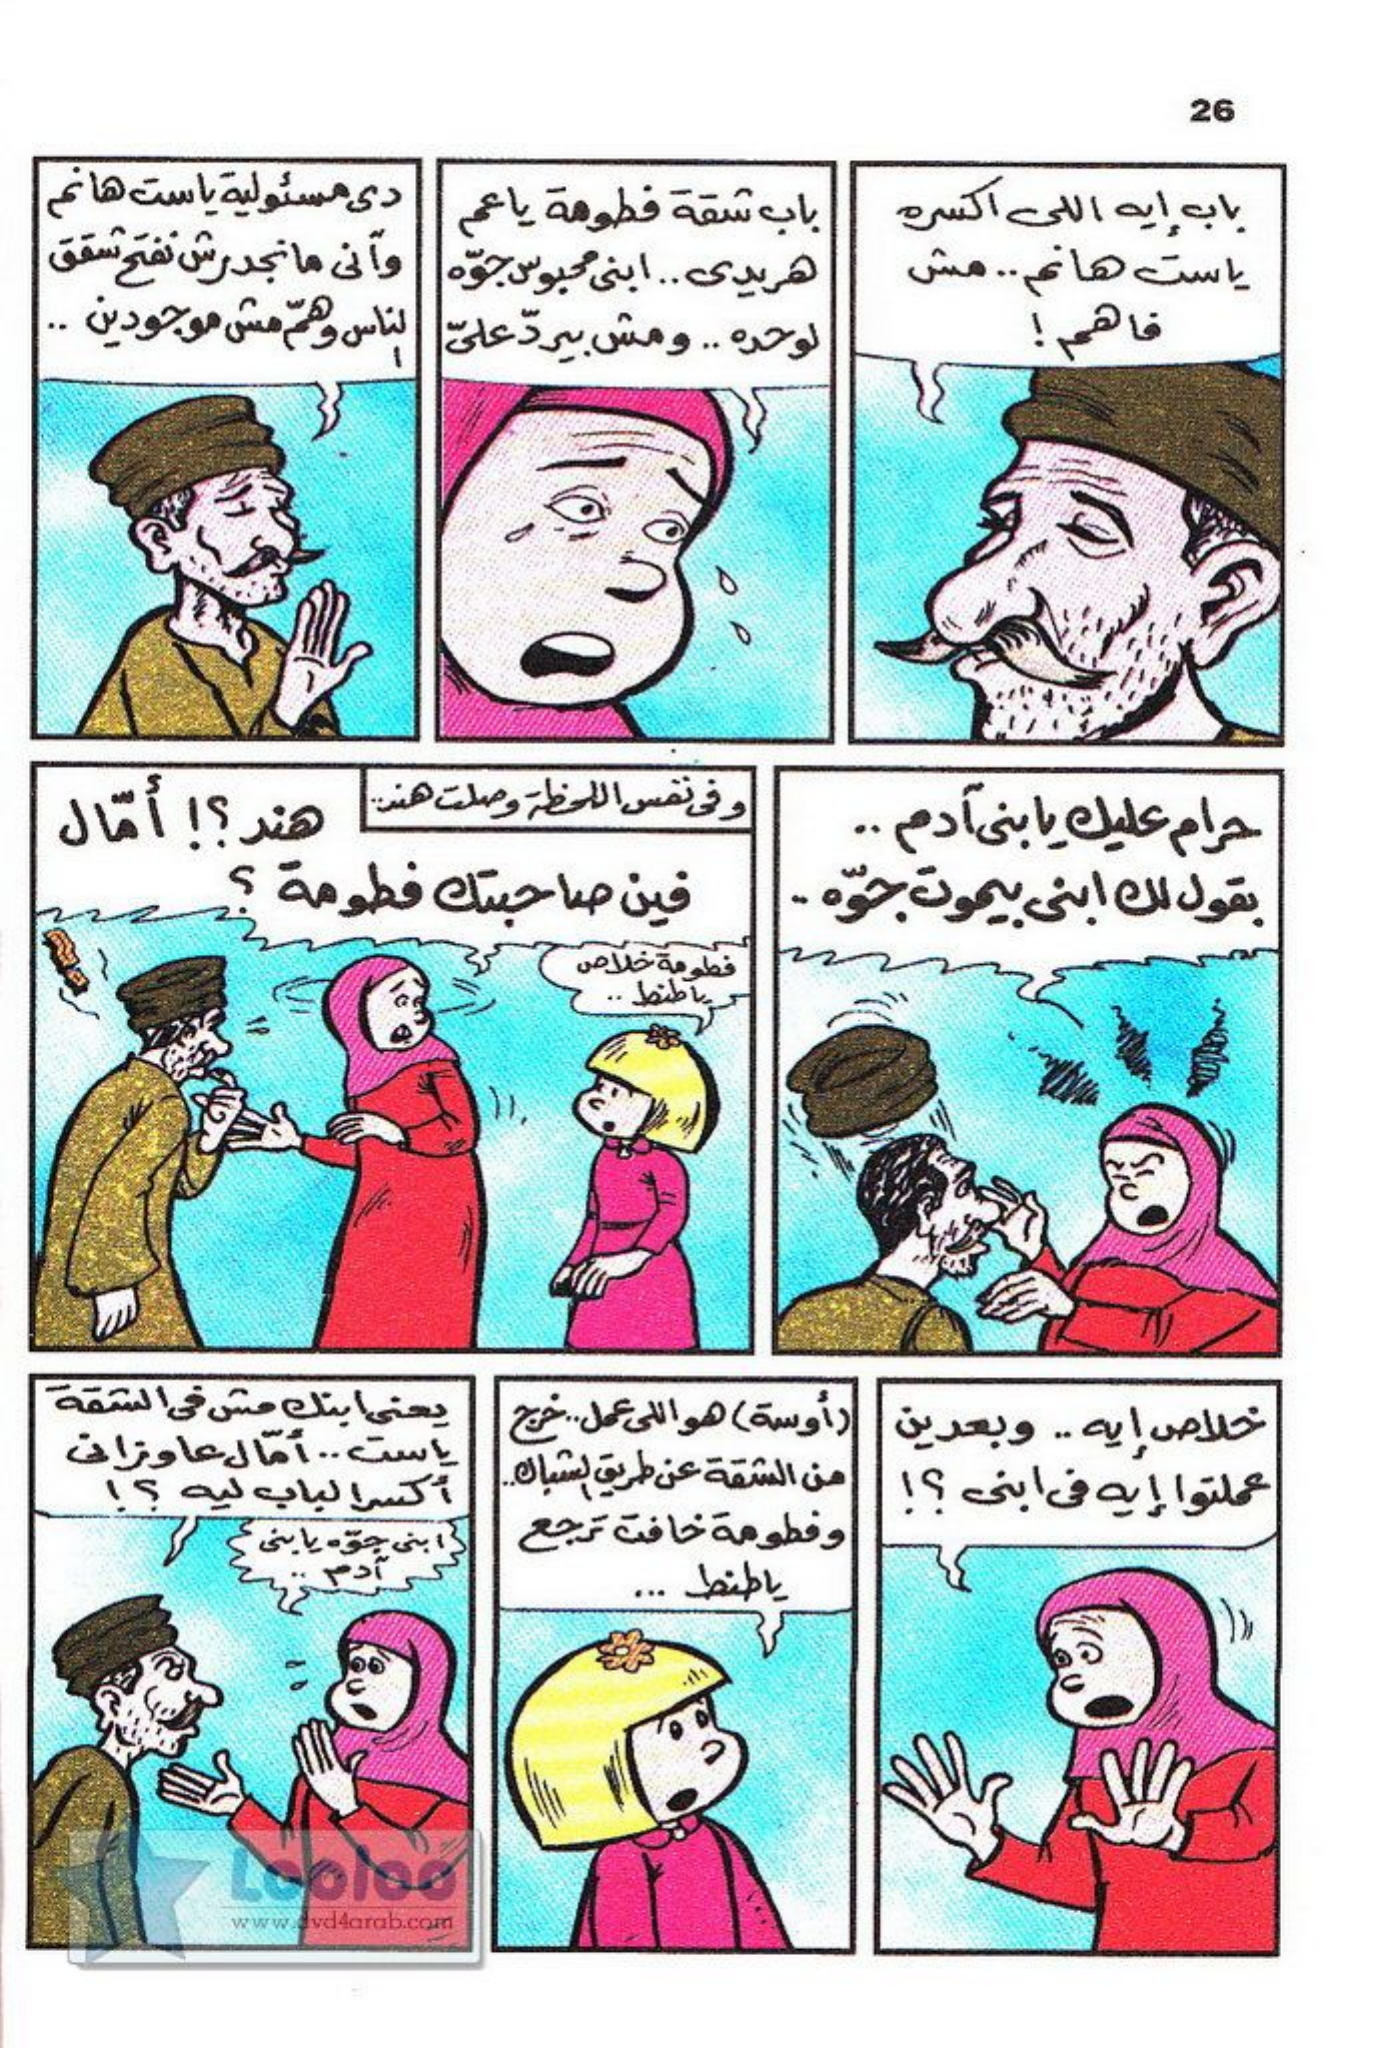 26
باب إيه اللى اكسره
ياست هانم.. مش
فاهم!
باب شقة فطومة ياعم
هريدى.. ابنى محبوس جوّه
لوحده.. ومش بيردّ علىّ
دى مسئولية ياست هانم
وآنى مانجدرش نفتح شقق
الناس وهمّ مش موجودين..
حرام عليك يا بنى آدم..
بقول لك ابنى بيموت جوّه..
وفى نفس اللحظة وصلت هند..
هند؟! أمّال
فين صاحبتك فطومة؟
فطومة خلاص
ياطنط..
خلاص إيه.. وبعدين
عملتوا إيه فى ابنى؟!
(أوسة) هو اللى عمل.. خرج
من الشقة عن طريق الشباك..
وفطومة خافت ترجع
ياطنط...
يعنى ابنك مش فى الشقة
ياست.. أمّال عاوزانى
أكسر الباب ليه؟!
ابنى جوّه يا بنى
آدم..
Looloo
www.dvd4arab.com